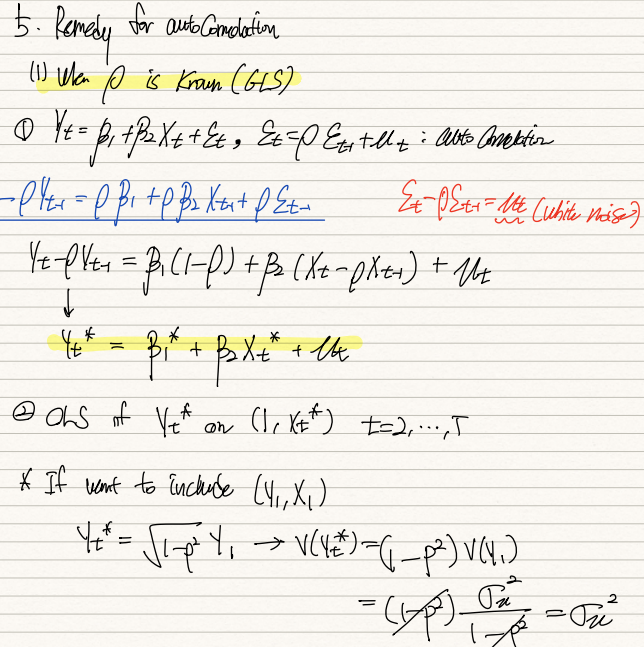 5. Remedy for autoCorrelation
(1) When ρ is Known (GLS)
① Yt = β1 + β2Xt + εt, εt = ρεt-1 + ut : auto Correlation
- ρYt-1 = ρβ1 + ρβ2Xt-1 + ρεt-1
εt - ρεt-1 = ut (white noise)
Yt - ρYt-1 = β1(1-ρ) + β2(Xt - ρXt-1) + ut
↓
Yt* = β1* + β2Xt* + ut
② OLS of Yt* on (1, Xt*) t=2, ⋯, T
* If want to include (Y1, X1)
Yt* = √(1-ρ²) Y1 → V(Yt*) = (1-ρ²) V(Y1)
= (1-ρ²) σu²/(1-ρ²) = σu²